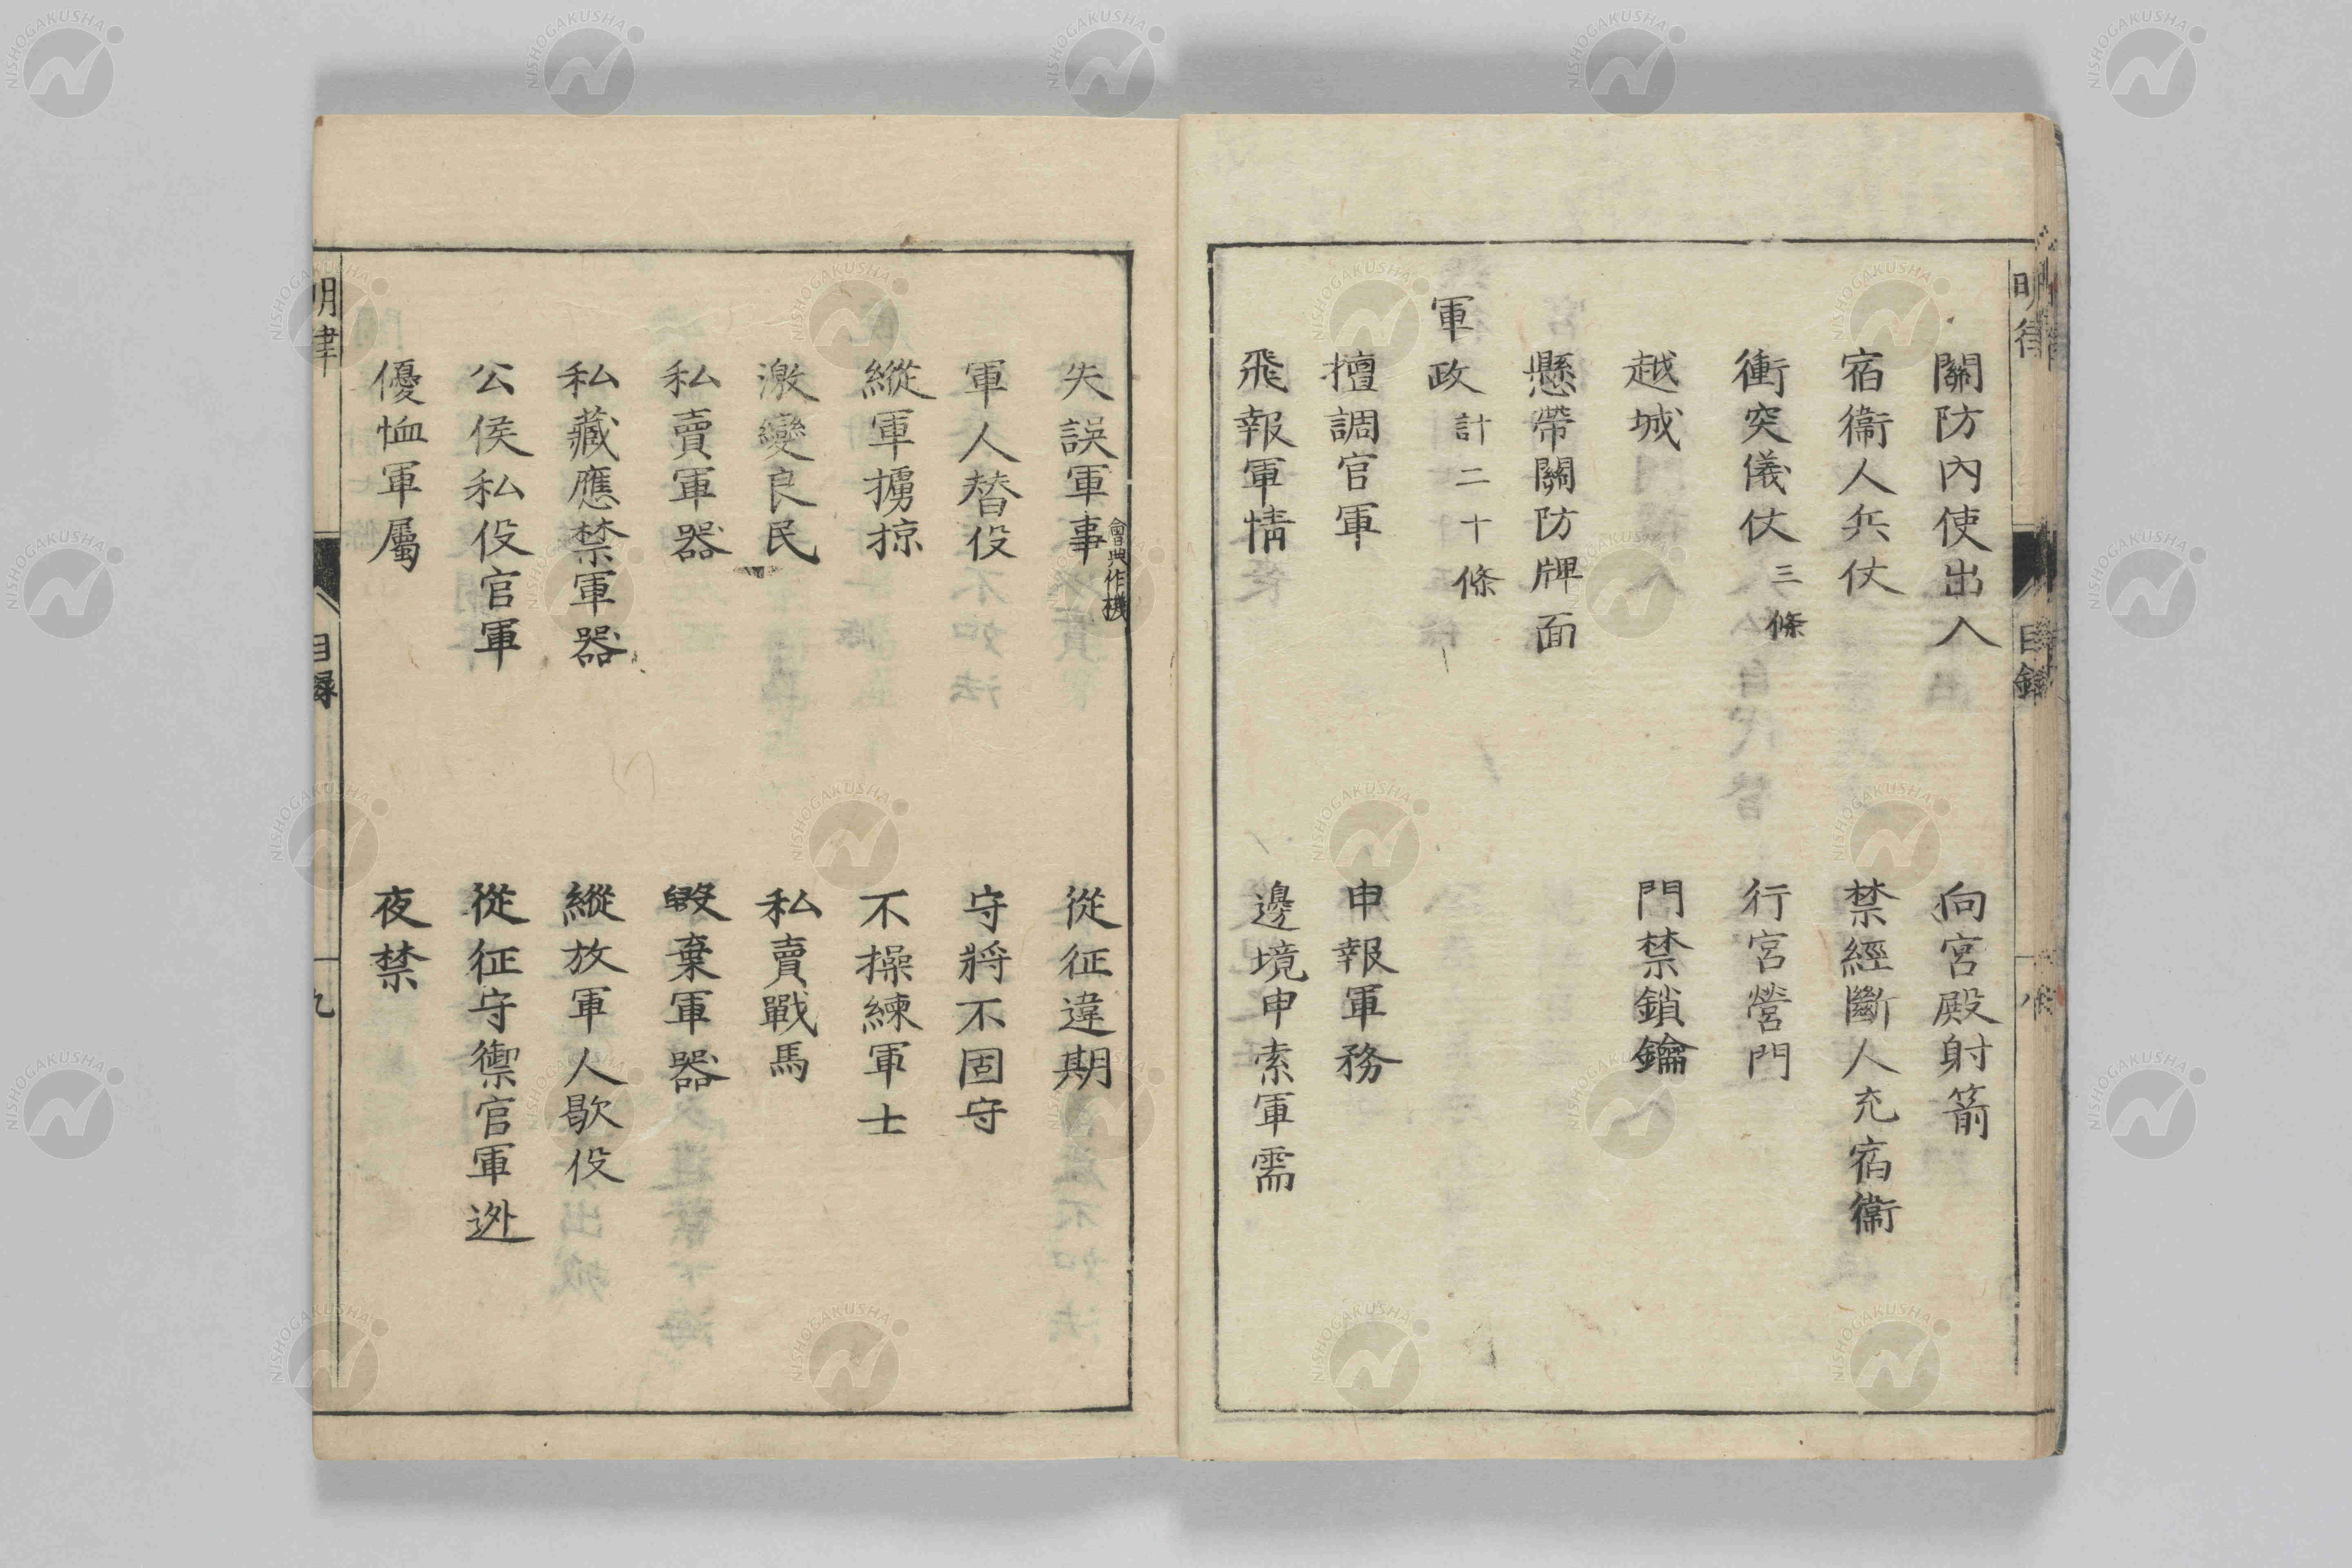 關防內使出入 向宮殿射箭
宿衞人兵仗 禁經斷人充宿衞
衝突儀仗三條 行宮營門
越城 門禁鎖鑰
懸帶關防牌面
軍政計二十條
擅調官軍 申報軍務
飛報軍情 邊境申索軍需
失誤軍事會典作機 從征違期
軍人替役 守將不固守
縱軍擄掠 不操練軍士
激變良民 私賣戰馬
私賣軍器 毀棄軍器
私藏應禁軍器 縱放軍人歇役
公侯私役官軍 從征守禦官軍迯
優恤軍屬 夜禁
明律 目録 九
NISHOGAKUSHA